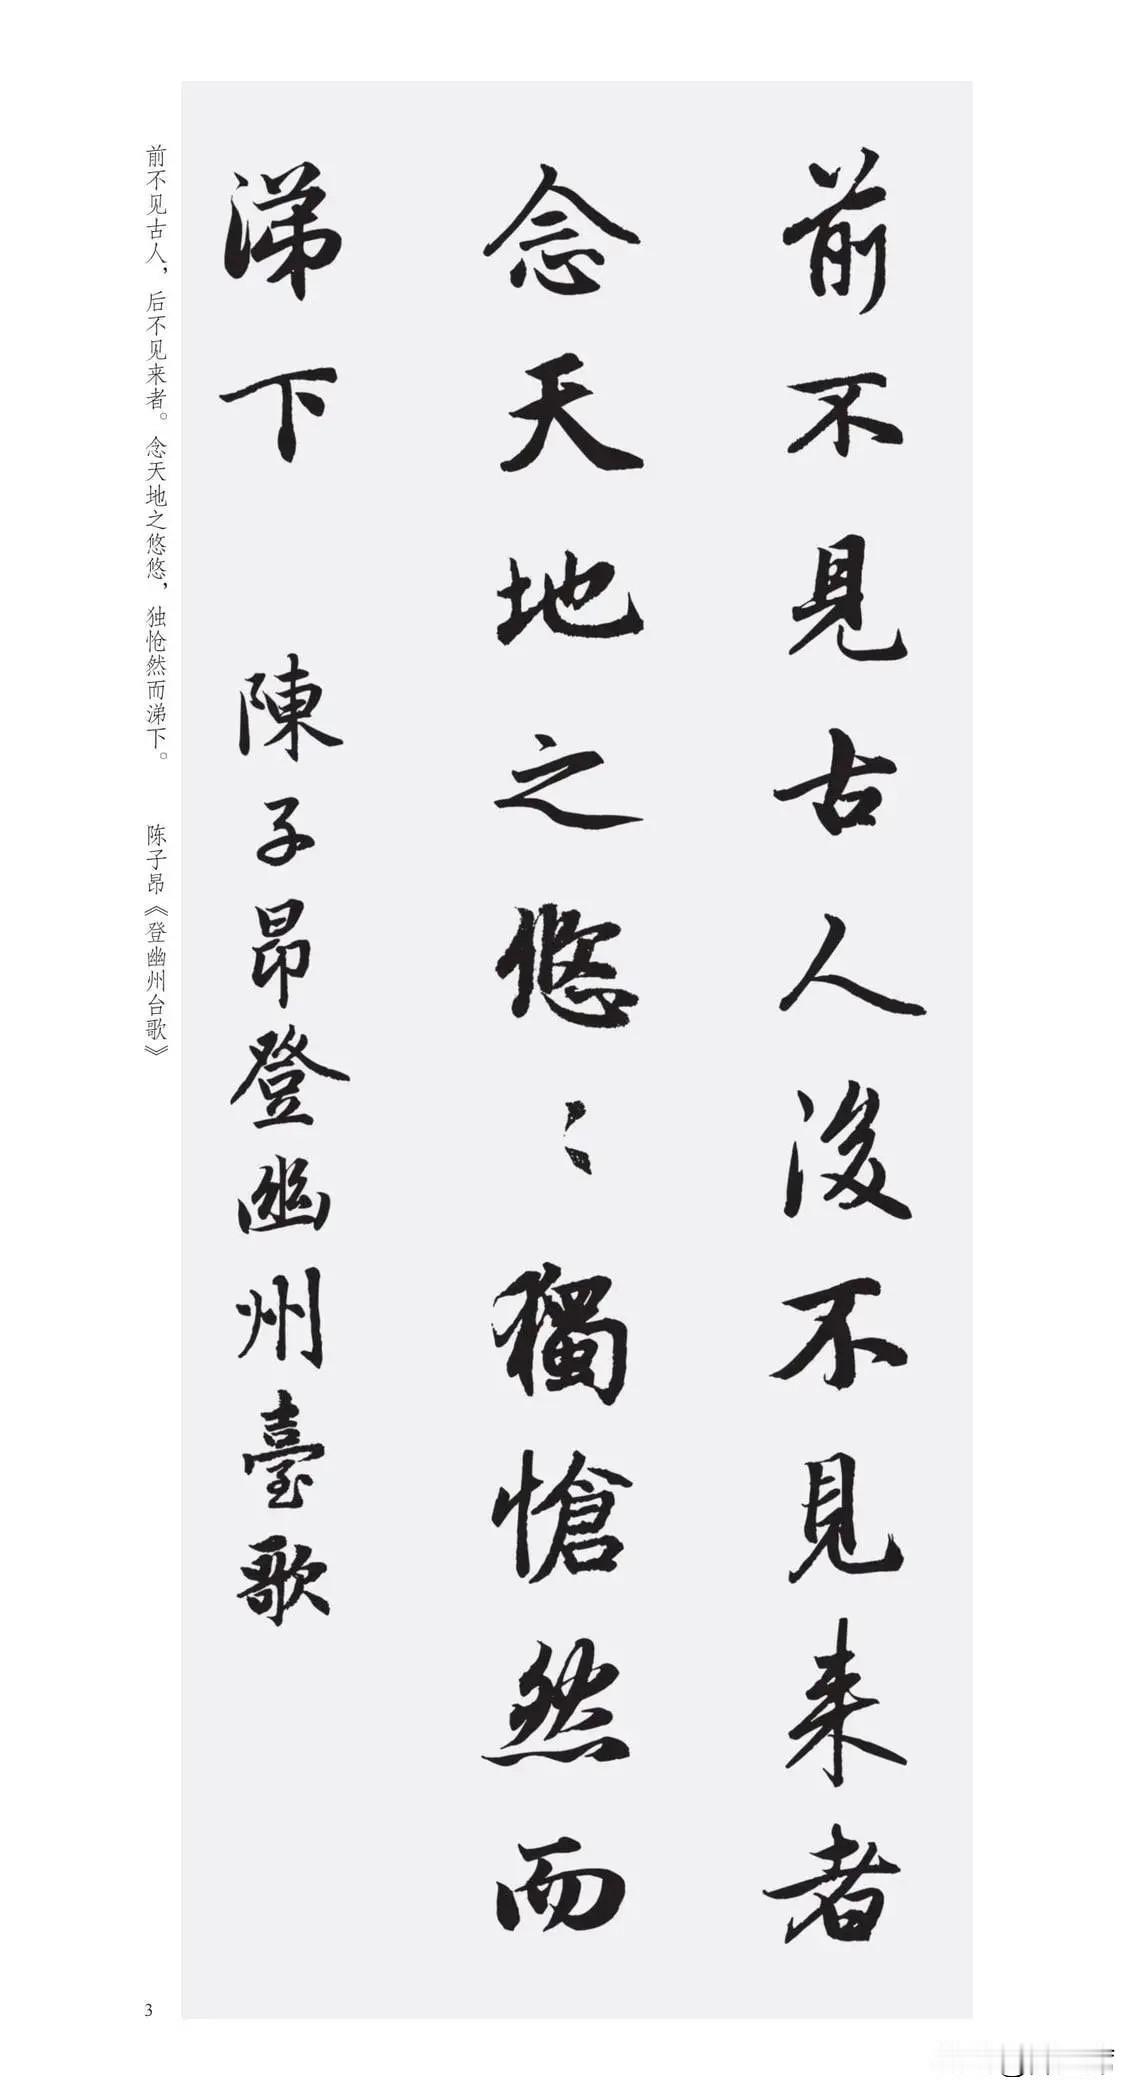 前不見古人後不見来者
念天地之悠〻獨愴然而
涕下 陳子昂登幽州臺歌
前不见古人，后不见来者。念天地之悠悠，独怆然而涕下。 陈子昂《登幽州台歌》
3